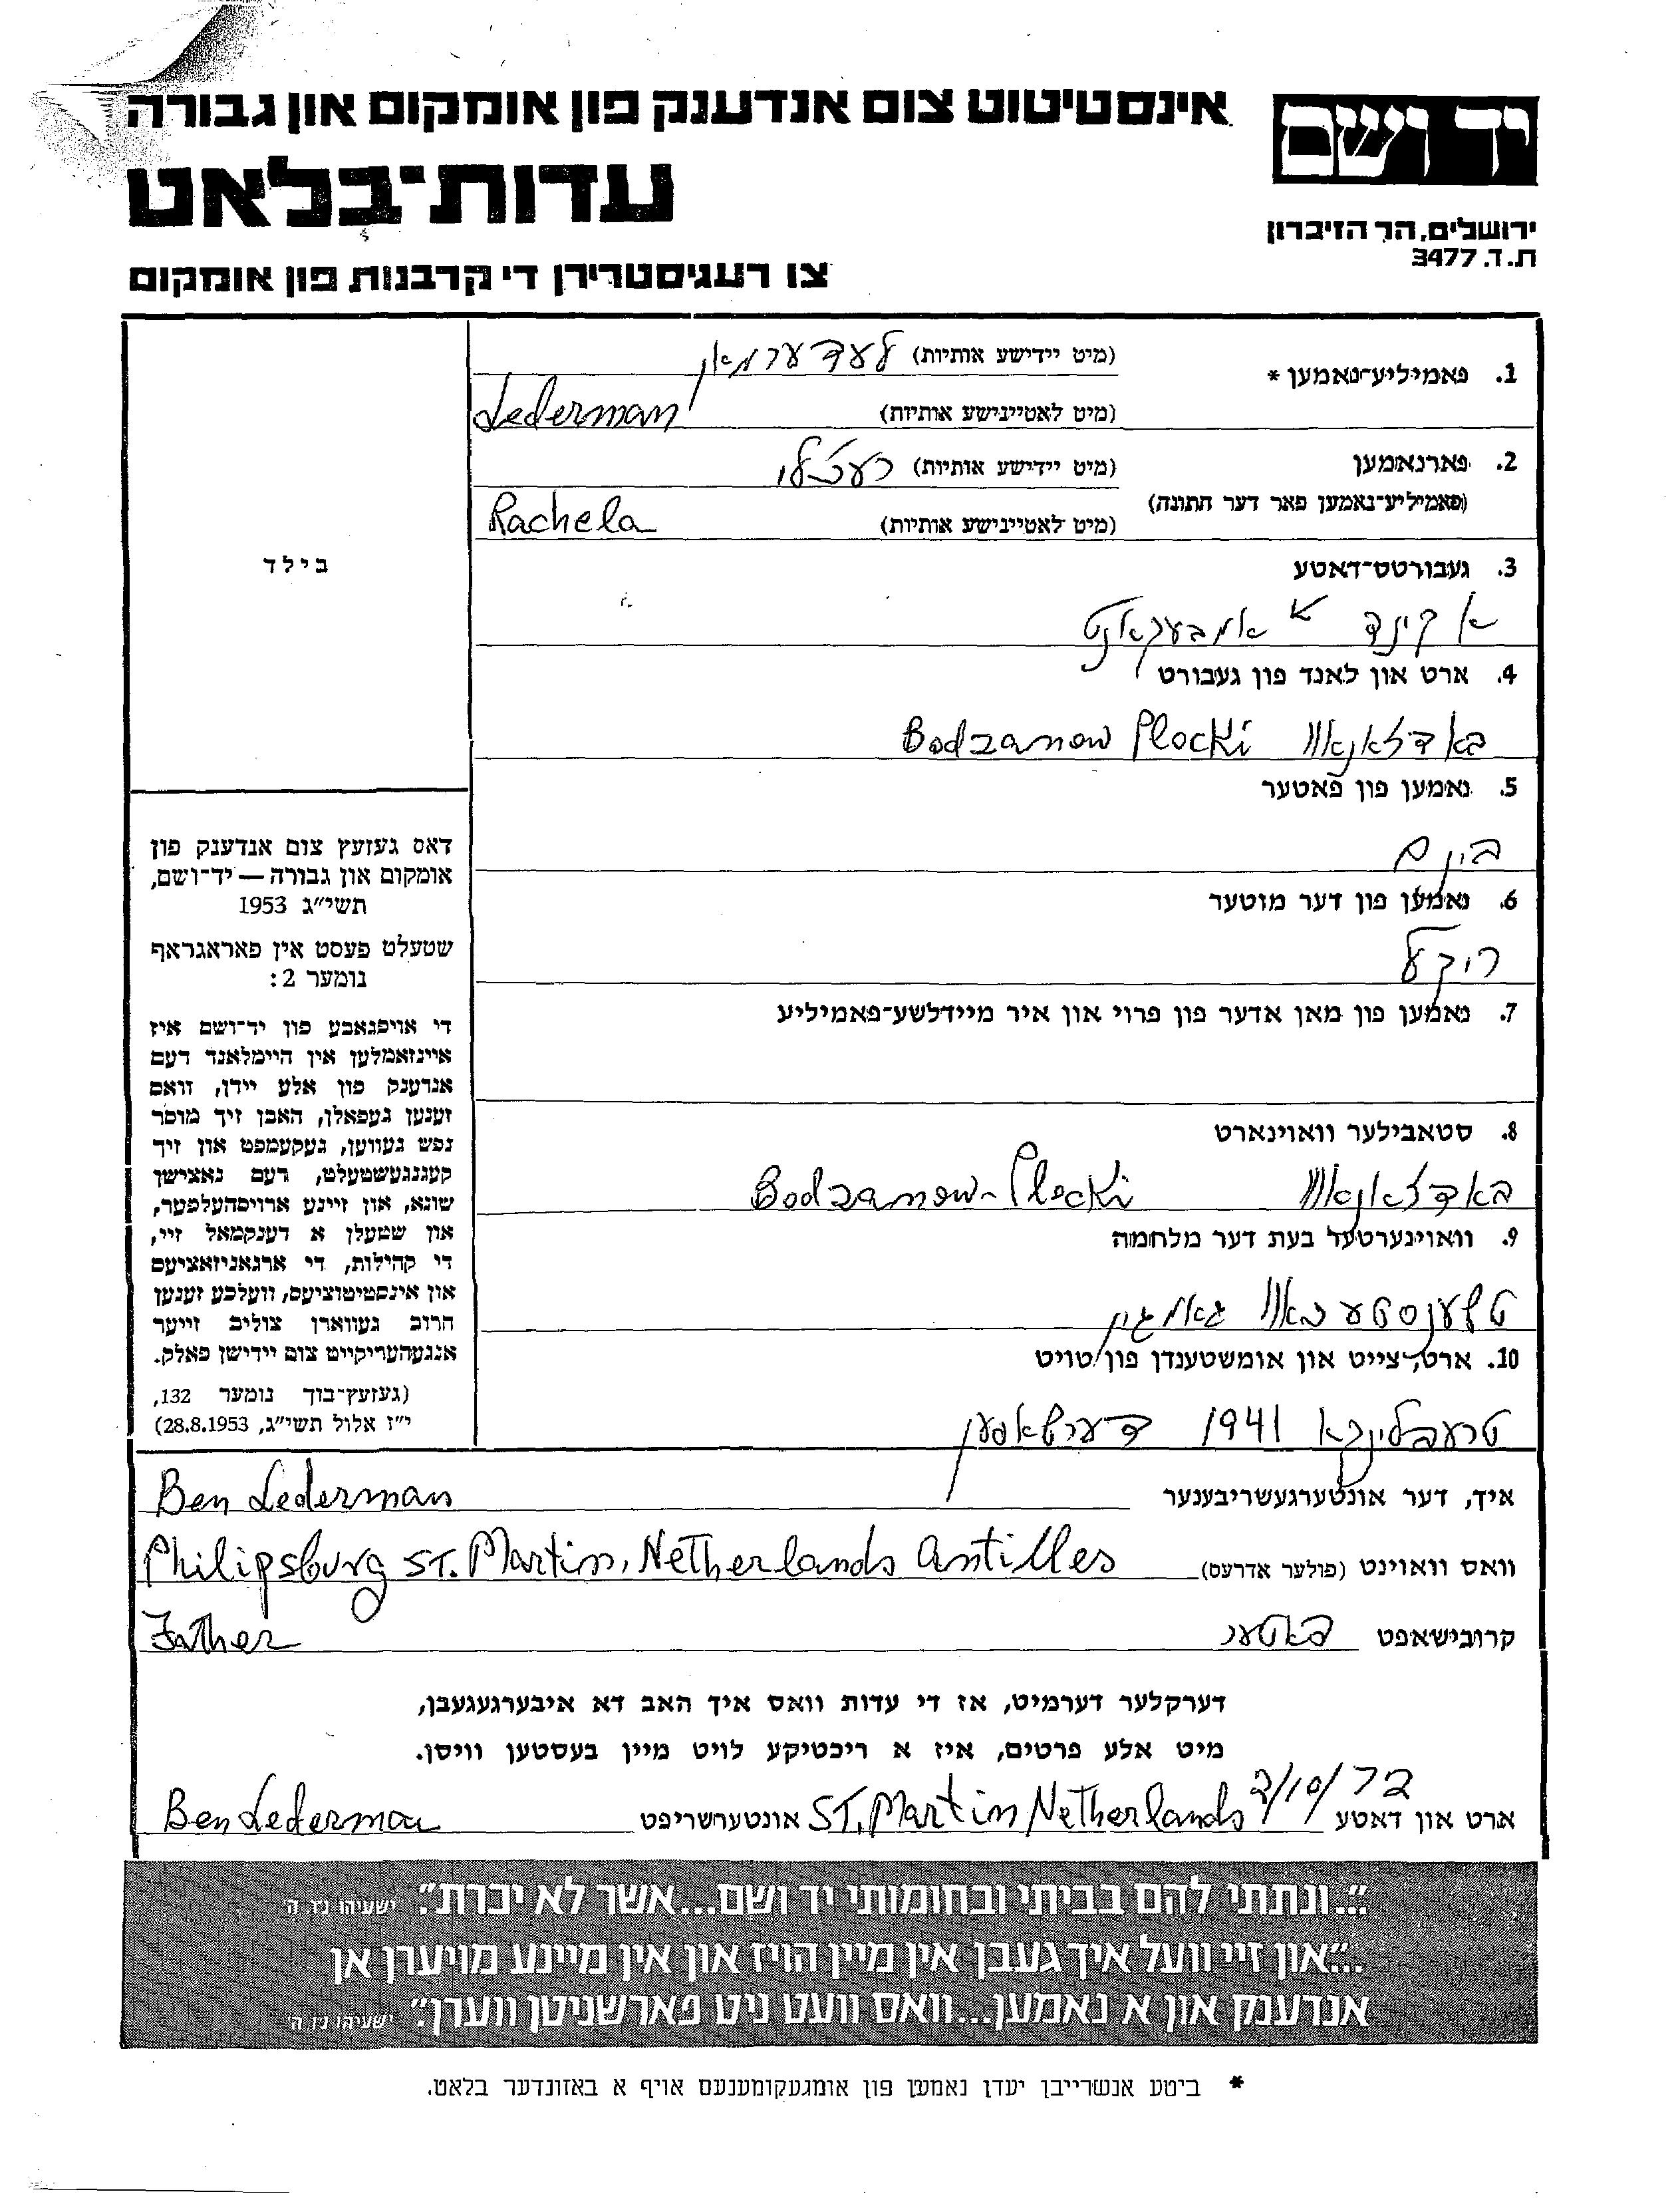 אינסטיטוט צום אנדענק פון אומקום און גבורה
יד ושם
עדות־בלאט
ירושלים, הר הזיכרון
ת.ד. 3477
צו רעגיסטרירן די קרבנות פון אומקום
1. פאמיליע־נאמען * (מיט יידישע אותיות) לעדערמאן
(מיט לאטיינישע אותיות) Lederman
2. פארנאמען (מיט יידישע אותיות)
(פאמיליע־נאמען פאר דער חתונה) (מיט לאטיינישע אותיות) Rachela
בילד
3. געבורטס־דאטע
א קינד אמבעקאנט
4. ארט און לאנד פון געבורט
באדזאנאוו Bodzanow Plocki
5. נאמען פון פאטער
בינם
6. נאמען פון דער מוטער
ריקל
7. נאמען פון מאן אדער פון פרוי און איר מיידלשע־פאמיליע
8. סטאבילער וואוינארט
באדזאנאוו Bodzanow-Plocki
9. וואוינערטער בעת דער מלחמה
טשענסטעכאוו
10. ארט, צייט און אומשטענדן פון טויט
טרעבלינקא 1941
דאס געזעץ צום אנדענק פון
אומקום און גבורה — יד־ושם,
תשי"ג 1953
שטעלט פעסט אין פאראגראף
נומער 2:
די אויפגאבע פון יד־ושם איז
איינזאמלען אין היימלאנד דעם
אנדענק פון אלע יידן, וואס
זענען געפאלן, האבן זיך מוסר
נפש געווען, געקעמפט און זיך
קעגנגעשטעלט, דעם נאצישן
שונא, און זיינע ארויסהעלפער,
און שטעלן א דענקמאל זיי,
די קהילות, די ארגאניזאציעס
און אינסטיטוציעס, וועלכע זענען
חרוב געווארן צוליב זייער
אנגעהעריקייט צום יידישן פאלק.
(געזעץ־בוך נומער 132,
י"ז אלול תשי"ג, 28.8.1953)
איך, דער אונטערגעשריבענער Ben Lederman
וואס וואוינט (פולער אדרעס) Philipsburg ST. Martin, Netherlands Antilles
קרובישאפט פאטער Father
דערקלער דערמיט, אז די עדות וואס איך האב דא איבערגעגעבן,
מיט אלע פרטים, איז א ריכטיקע לויט מיין בעסטען וויסן.
ארט און דאטע ST. Martin Netherlands 2/10/72 אונטערשריפט Ben Lederman
"...ונתתי להם בביתי ובחומותי יד ושם...אשר לא יכרת". ישעיהו נ"ו ה'
..."און זיי וועל איך געבן אין מיין הויז און אין מיינע מויערן אן
אנדענק און א נאמען...וואס וועט ניט פארשניטן ווערן". ישעיהו נ"ו ה'
* ביטע אנשרייבן יעדן נאמען פון אומגעקומענעם אויף א באזונדער בלאט.